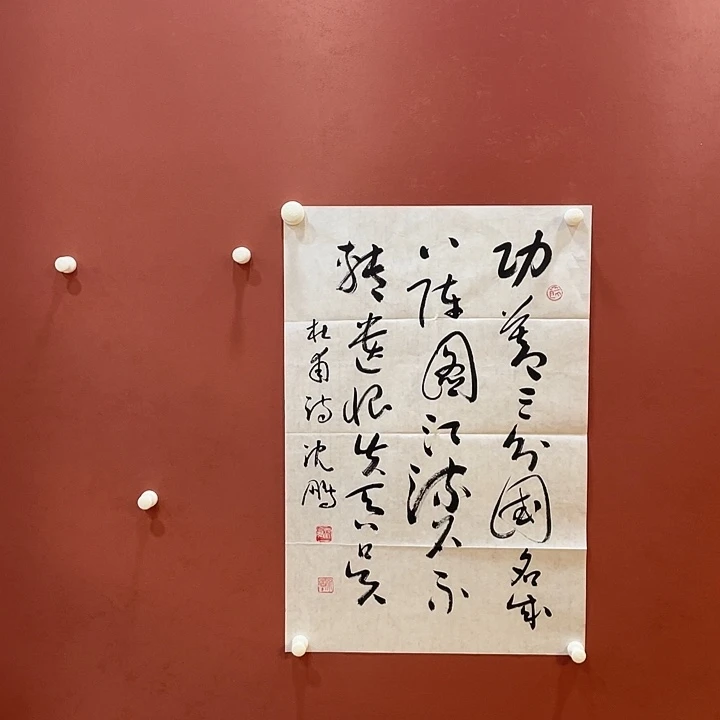 功蓋三分國名成
八陣圖江流石不
轉遺恨失吞吴
杜甫詩 沈鵬